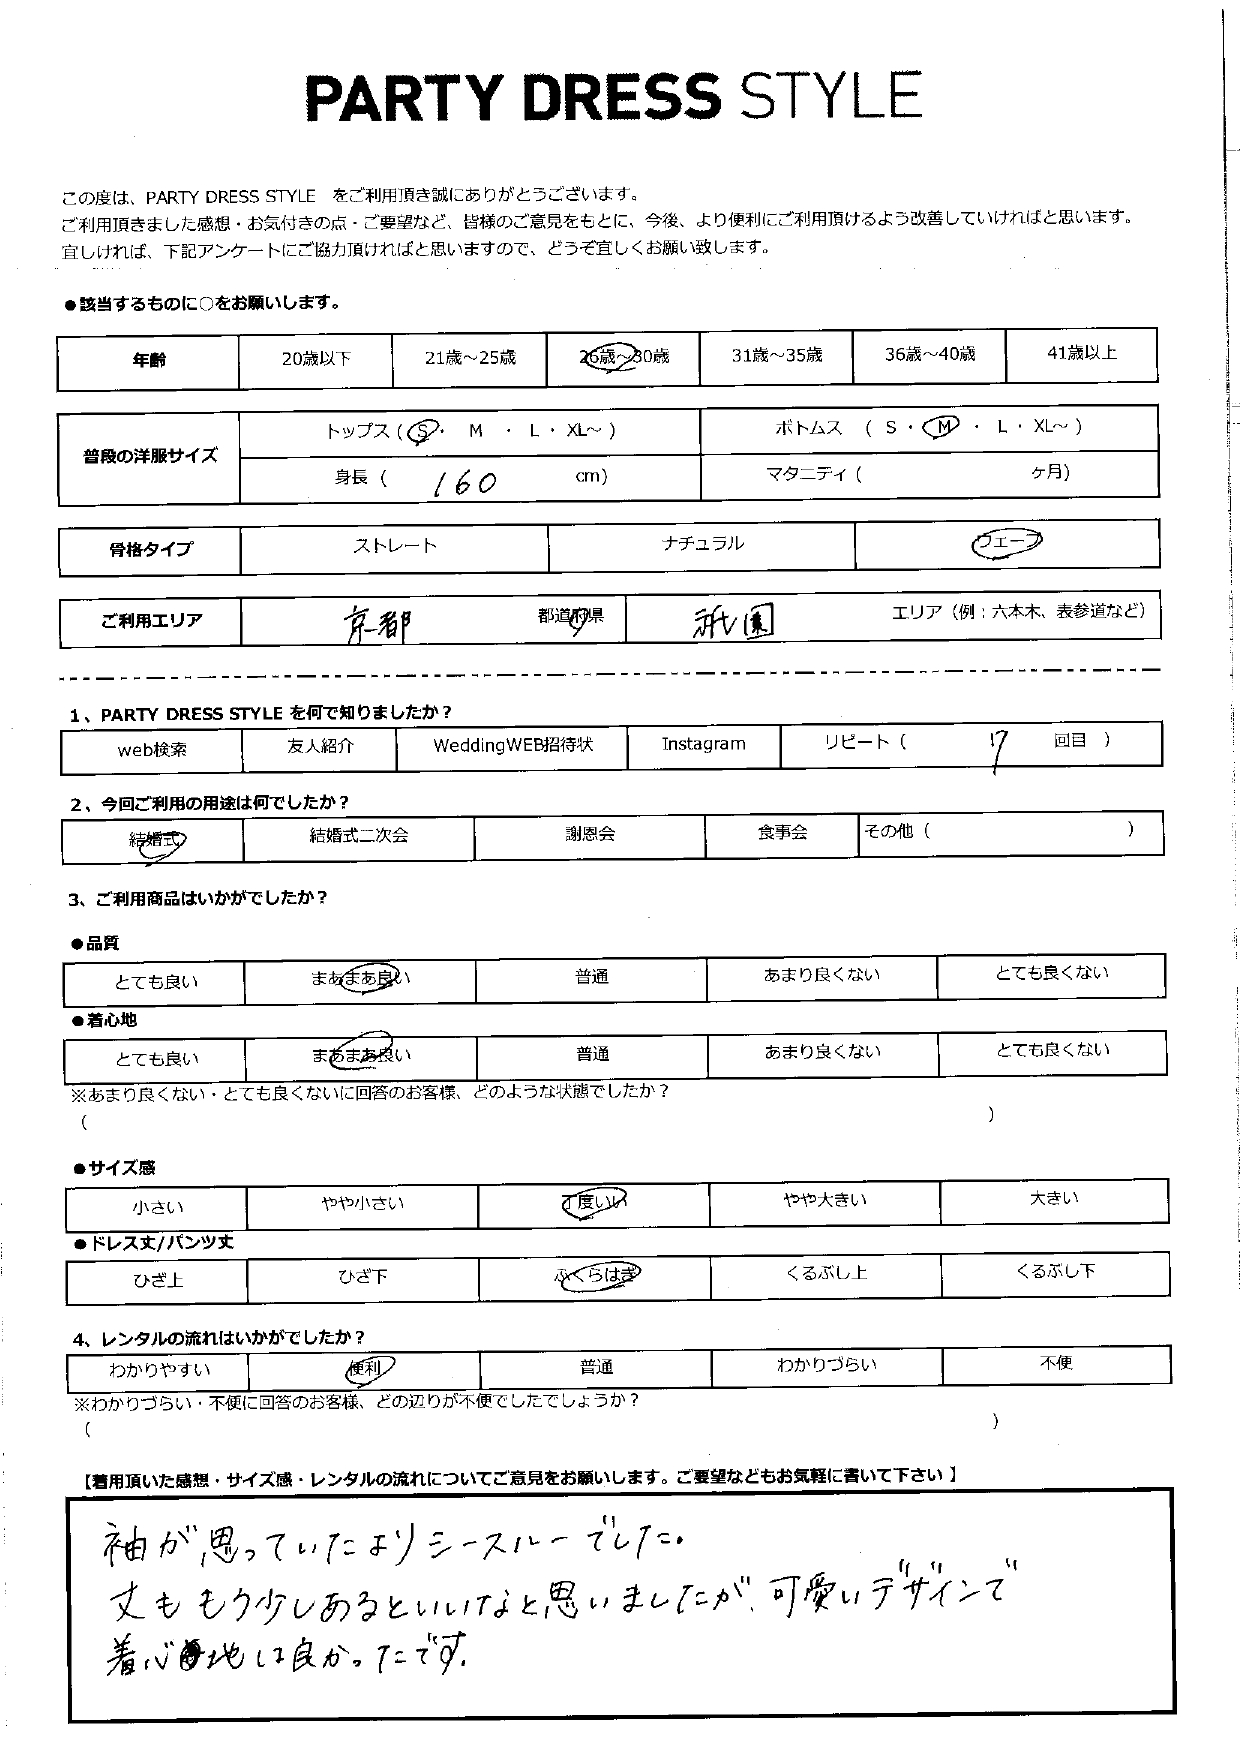 PARTY DRESS STYLE
この度は、PARTY DRESS STYLE をご利用頂き誠にありがとうございます。
ご利用頂きました感想・お気付きの点・ご要望など、皆様のご意見をもとに、今後、より便利にご利用頂けるよう改善していければと思います。
宜しければ、下記アンケートにご協力頂ければと思いますので、どうぞ宜しくお願い致します。
●該当するものに○をお願いします。
年齢 20歳以下 21歳～25歳 26歳～30歳 31歳～35歳 36歳～40歳 41歳以上
普段の洋服サイズ
トップス ( S ・ M ・ L ・ XL～ ) ボトムス ( S ・ M ・ L ・ XL～ )
身長 ( 160 cm) マタニティ ( ヶ月)
骨格タイプ ストレート ナチュラル ウェーブ
ご利用エリア 京都 都道府県 祇園 エリア（例：六本木、表参道など）
1、PARTY DRESS STYLE を何で知りましたか？
web検索 友人紹介 WeddingWEB招待状 Instagram リピート ( 回目 )
2、今回ご利用の用途は何でしたか？
結婚式 結婚式二次会 謝恩会 食事会 その他 ( )
3、ご利用商品はいかがでしたか？
●品質
とても良い まあまあ良い 普通 あまり良くない とても良くない
●着心地
とても良い まあまあ良い 普通 あまり良くない とても良くない
※あまり良くない・とても良くないに回答のお客様、どのような状態でしたか？
( )
●サイズ感
小さい やや小さい 丁度いい やや大きい 大きい
●ドレス丈/パンツ丈
ひざ上 ひざ下 ふくらはぎ くるぶし上 くるぶし下
4、レンタルの流れはいかがでしたか？
わかりやすい 便利 普通 わかりづらい 不便
※わかりづらい・不便に回答のお客様、どの辺りが不便でしたでしょうか？
( )
【着用頂いた感想・サイズ感・レンタルの流れについてご意見をお願いします。ご要望などもお気軽に書いて下さい 】
袖が思っていたよりシースルーでした。
丈ももう少しあるといいなと思いましたが、可愛いデザインで
着心地は良かったです。